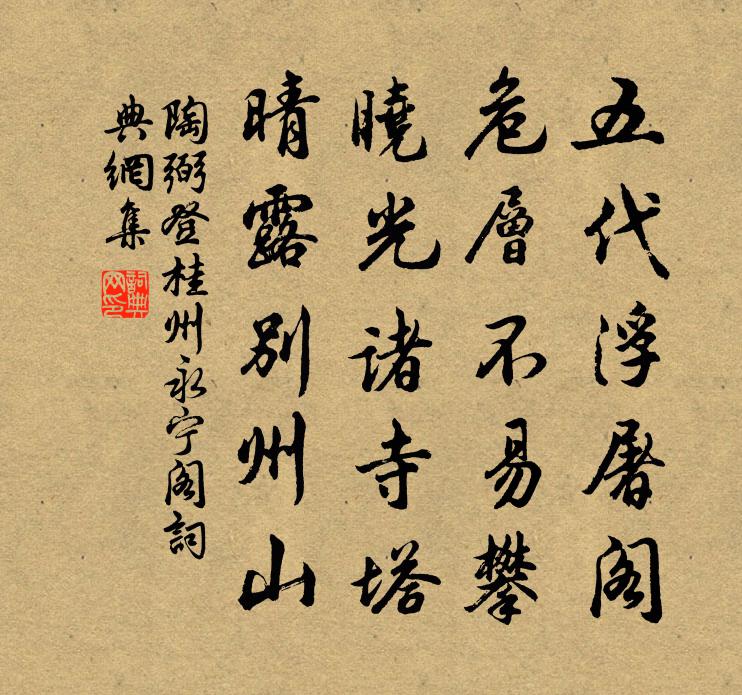 五代浮屠阁
危層不易攀
曉光諸寺塔
晴露別州山
陶弼登桂州永宁阁詞
典網集
詞典
网印